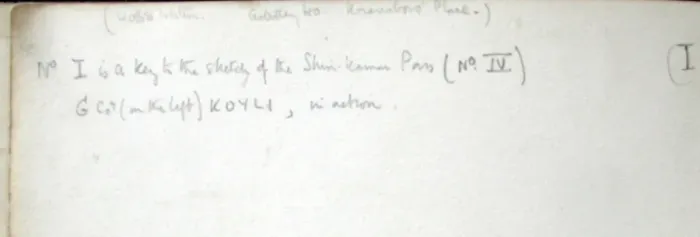 Place.)
No I is a key to the sketch of the Shin-Kamar Pass (No. IV.)
(I
G Coy (on the left) KOYLI, in action.